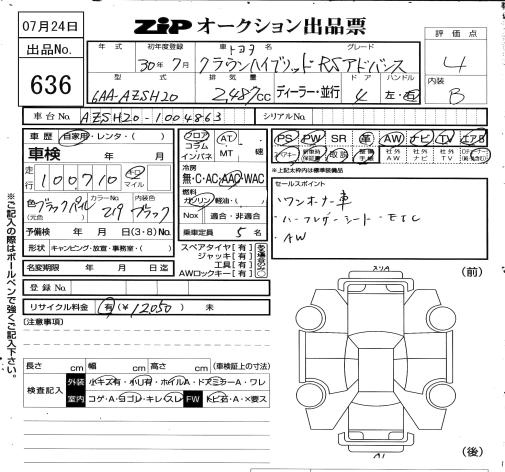 07月24日
ZIP オークション出品票
出品No.
636
年式
初年度登録
30年7月
車名
トヨタ
クラウンハイブリッド
グレード
RSアドバンス
評価点
4
型式
6AA-AZSH20
排気量
2,487cc
ディーラー・並行
ドア
4
ハンドル
左・右
内装
B
車台No.
AZSH20-1004863
シリアルNo.
車歴
自家用・レンタ・( )
車検 年 月
走行
100710
キロ
マイル
色
ブラックパール
(元色)
カラーNo.
219
内装色
ブラック
予備検 年 月 日(3・8)No.
形状 キャンピング・放宣・事務室・( )
名変期限 年 月 日迄
登録No.
リサイクル料金 有(¥12050) 未
フロア
コラム
インパネ
AT
MT 速
冷房
無・C・AC・AAC・WAC
燃料
ガソリン・軽油・( )
Nox 適合・非適合
乗車定員 5 名
スペアタイヤ[有]
ジャッキ[有]
工具[有]
AWロックキー[有]
PS PW SR 革 AW ナビ TV エアB
取説
社外AW
社外ナビ
社外TV
※上記太枠内は標準装備品
セールスポイント
・ワンオーナー車
・ハーフレザーシート・ETC
・AW
[注意事項]
長さ cm 幅 cm 高さ cm (車検証上の寸法)
検査記入
外装 小キズ有・小U有・ホイルA・ドアミラーA・ワレ
室内 コゲ・A・ヨゴレ・キレ・スレ FW トビ石・A・X要ス
(前)
(後)
※ご記入の際はボールペンで強くご記入下さい。